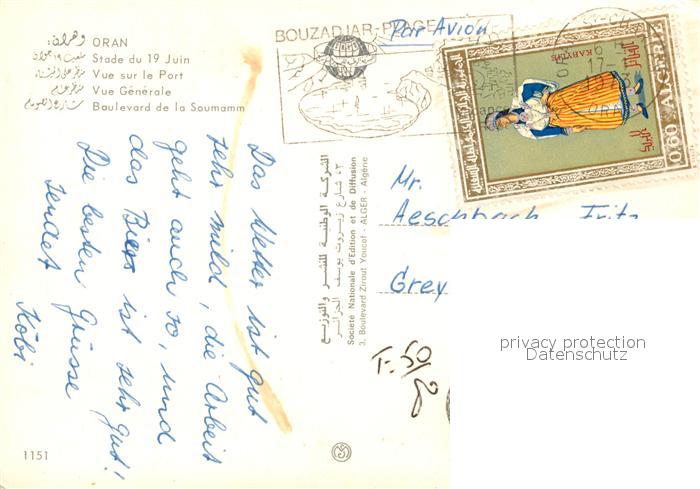 وهران: ORAN
Stade du 19 Juin
Vue sur le Port
منظر عام Vue Générale
شارع الصومام Boulevard de la Soumamm
BOUZADJAR-PLAGE
Par Avion
KABYLIE
0,60 ALGERIE
Das Wetter ist gut
sehr mild, die Arbeit
geht auch so, und
das Bier ist sehr gut!
Die besten Grüsse
sendet Köbi
الشركة الوطنية للنشر والتوزيع
٣، شارع زيروت يوسف الجزائر
Société Nationale d'Edition et de Diffusion
3, Boulevard Zirout Youcef - ALGER - Algérie
Mr.
Aeschbach Fritz
Grey
privacy protection
Datenschutz
1151